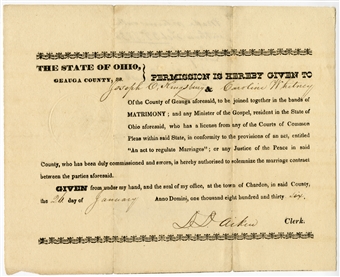 THE STATE OF OHIO,
GEAUGA COUNTY, ss.
PERMISSION IS HEREBY GIVEN TO
Joseph C. Kingsbury & Caroline Whitney
Of the County of Geauga aforesaid, to be joined together in the bands of
MATRIMONY; and any Minister of the Gospel, resident in the State of
Ohio aforesaid, who has a license from any of the Courts of Common
Pleas within said State, in conformity to the provisions of an act, entitled
"An act to regulate Marriages"; or any Justice of the Peace in said
County, who has been duly commissioned and sworn, is hereby authorised to solemnize the marriage contract
between the parties aforesaid.
GIVEN from under my hand, and the seal of my office, at the town of Chardon, in said County,
the 26 day of January Anno Domini, one thousand eight hundred and thirty six,
D. D. Aiken Clerk.